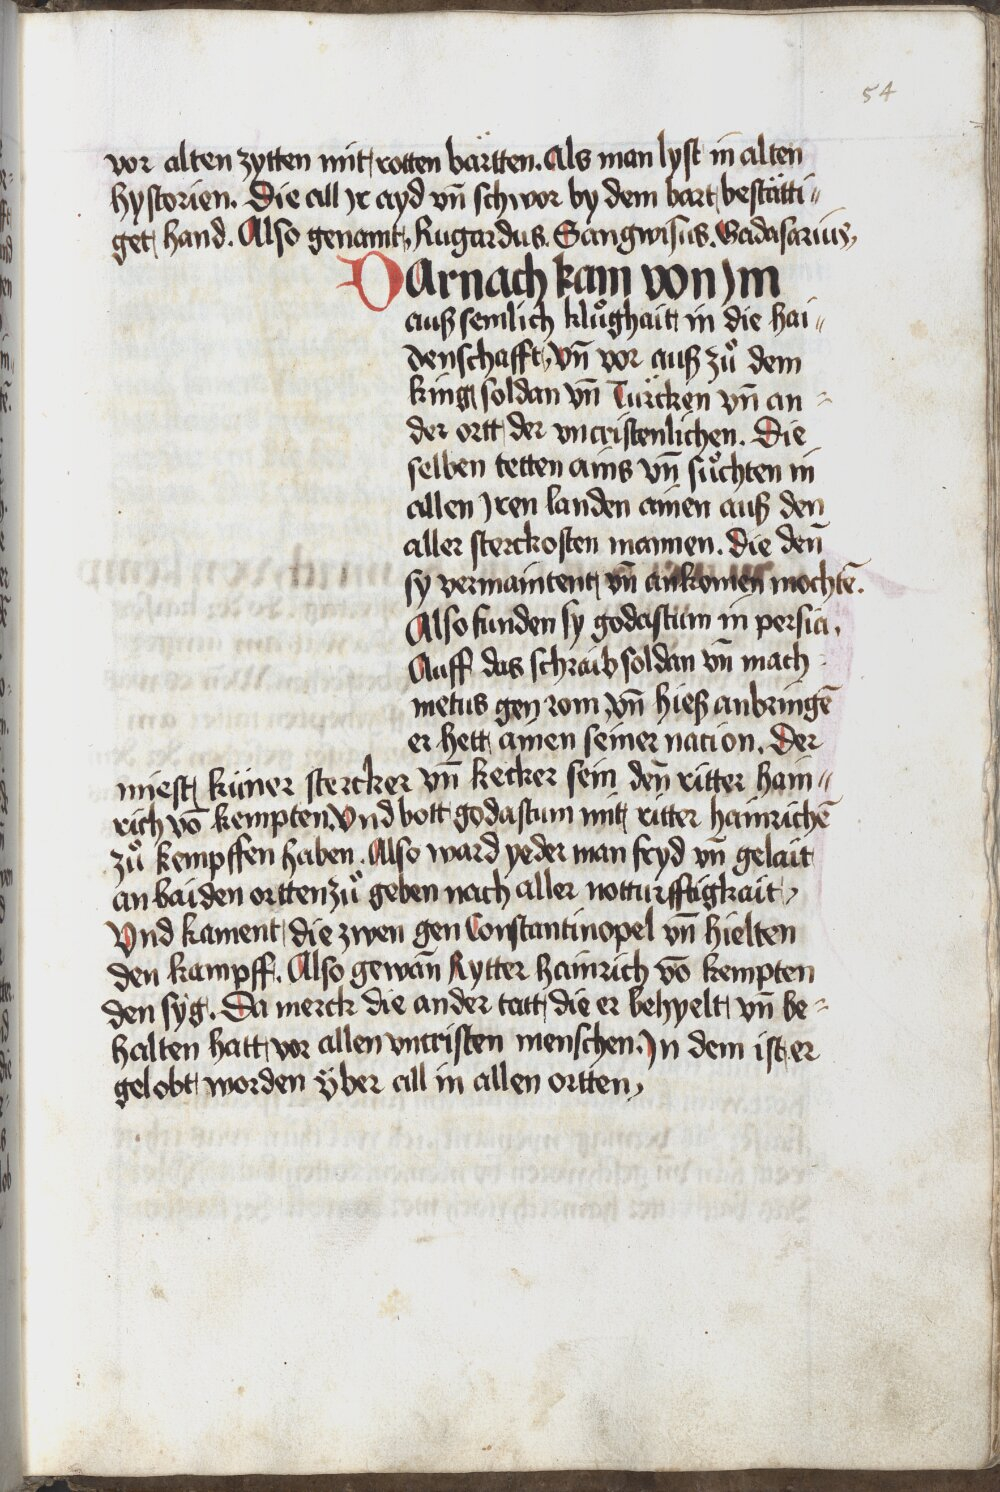 54
vor alten zytten mit rotten bärtten. Als man lyst in alten
hystorien. Die all yr ayd vn̄ schwor by dem bart bestätti„
get hand. Also genamt, Rugardus. Sangwisus. Gadasarius,
DArnach kam von ym
auß semlich klůghait in die hai„
denschafft, vn̄ vor auß zů dem
king soldan vn̄ Türcken vn̄ an⸗
der ortt der vncristenlichen. Die
selben tetten ains vn̄ sůchten in
allen yren landen ainen auß den
aller sterckosten mannen. die den̄
sy vermaintent vn̄ ankomen mochtē.
Also funden sy godastum in persia,
Auff das schraib soldan vn̄ mach⸗
metus gen rom, vn̄ hieß anbringē
er hett ainen seiner nacion. Der
miest küner stercker vn̄ kecker sein den̄ ritter hain„
rich vō kempten. Vnd bott godastum mit ritter hainrichē
zů kempffen haben. Also ward yeder man fryd vn̄ gelait
an baiden ortten zů geben nach aller notturfftigkait,
Vnd kament die zwen gen Constantinopel vn̄ hielten
den kampff. Also gewan̄ Rytter hainrich vō kempten
den syg. Da merck die ander tatt die er behyelt vn̄ be⸗
halten hatt vor allen vncristen menschen. Jn dem ist er
gelobt worden ÿber all in allen ortten,